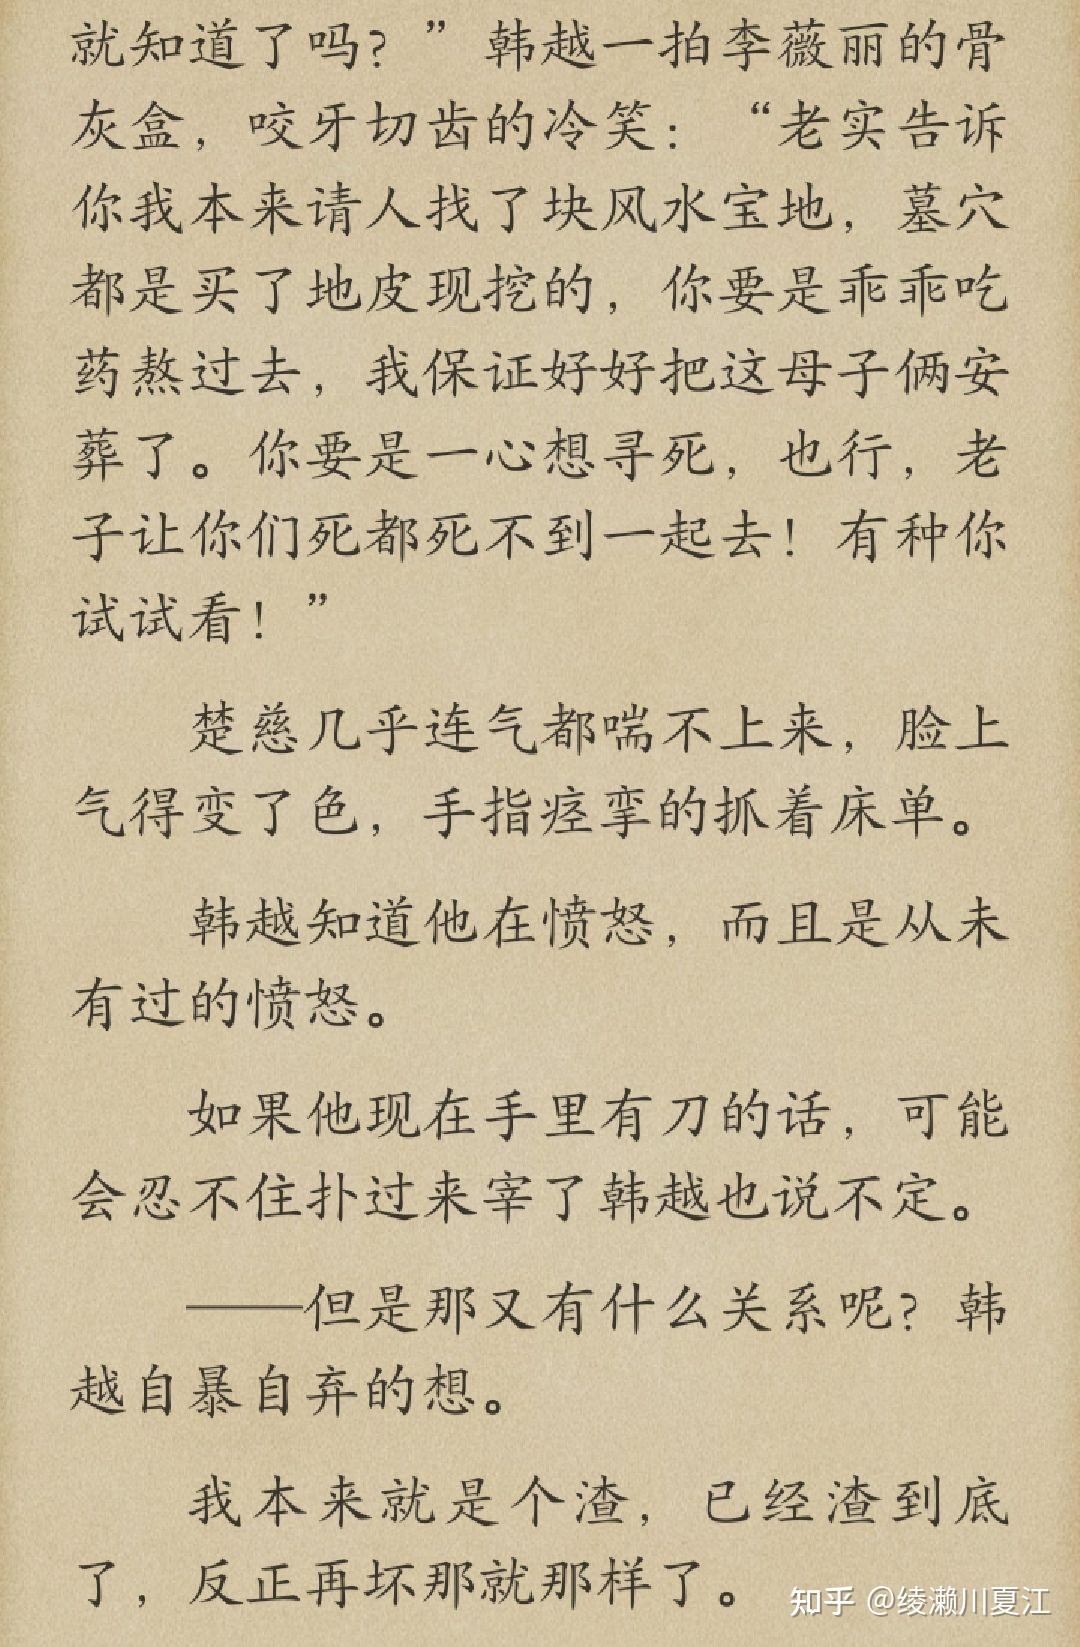 就知道了吗？”韩越一拍李薇丽的骨
灰盒，咬牙切齿的冷笑：“老实告诉
你我本来请人找了块风水宝地，墓穴
都是买了地皮现挖的，你要是乖乖吃
药熬过去，我保证好好把这母子俩安
葬了。你要是一心想寻死，也行，老
子让你们死都死不到一起去！有种你
试试看！”
楚慈几乎连气都喘不上来，脸上
气得变了色，手指痉挛的抓着床单。
韩越知道他在愤怒，而且是从未
有过的愤怒。
如果他现在手里有刀的话，可能
会忍不住扑过来宰了韩越也说不定。
——但是那又有什么关系呢？韩
越自暴自弃的想。
我本来就是个渣，已经渣到底
了，反正再坏那就那样了。
知乎 @绫濑川夏江